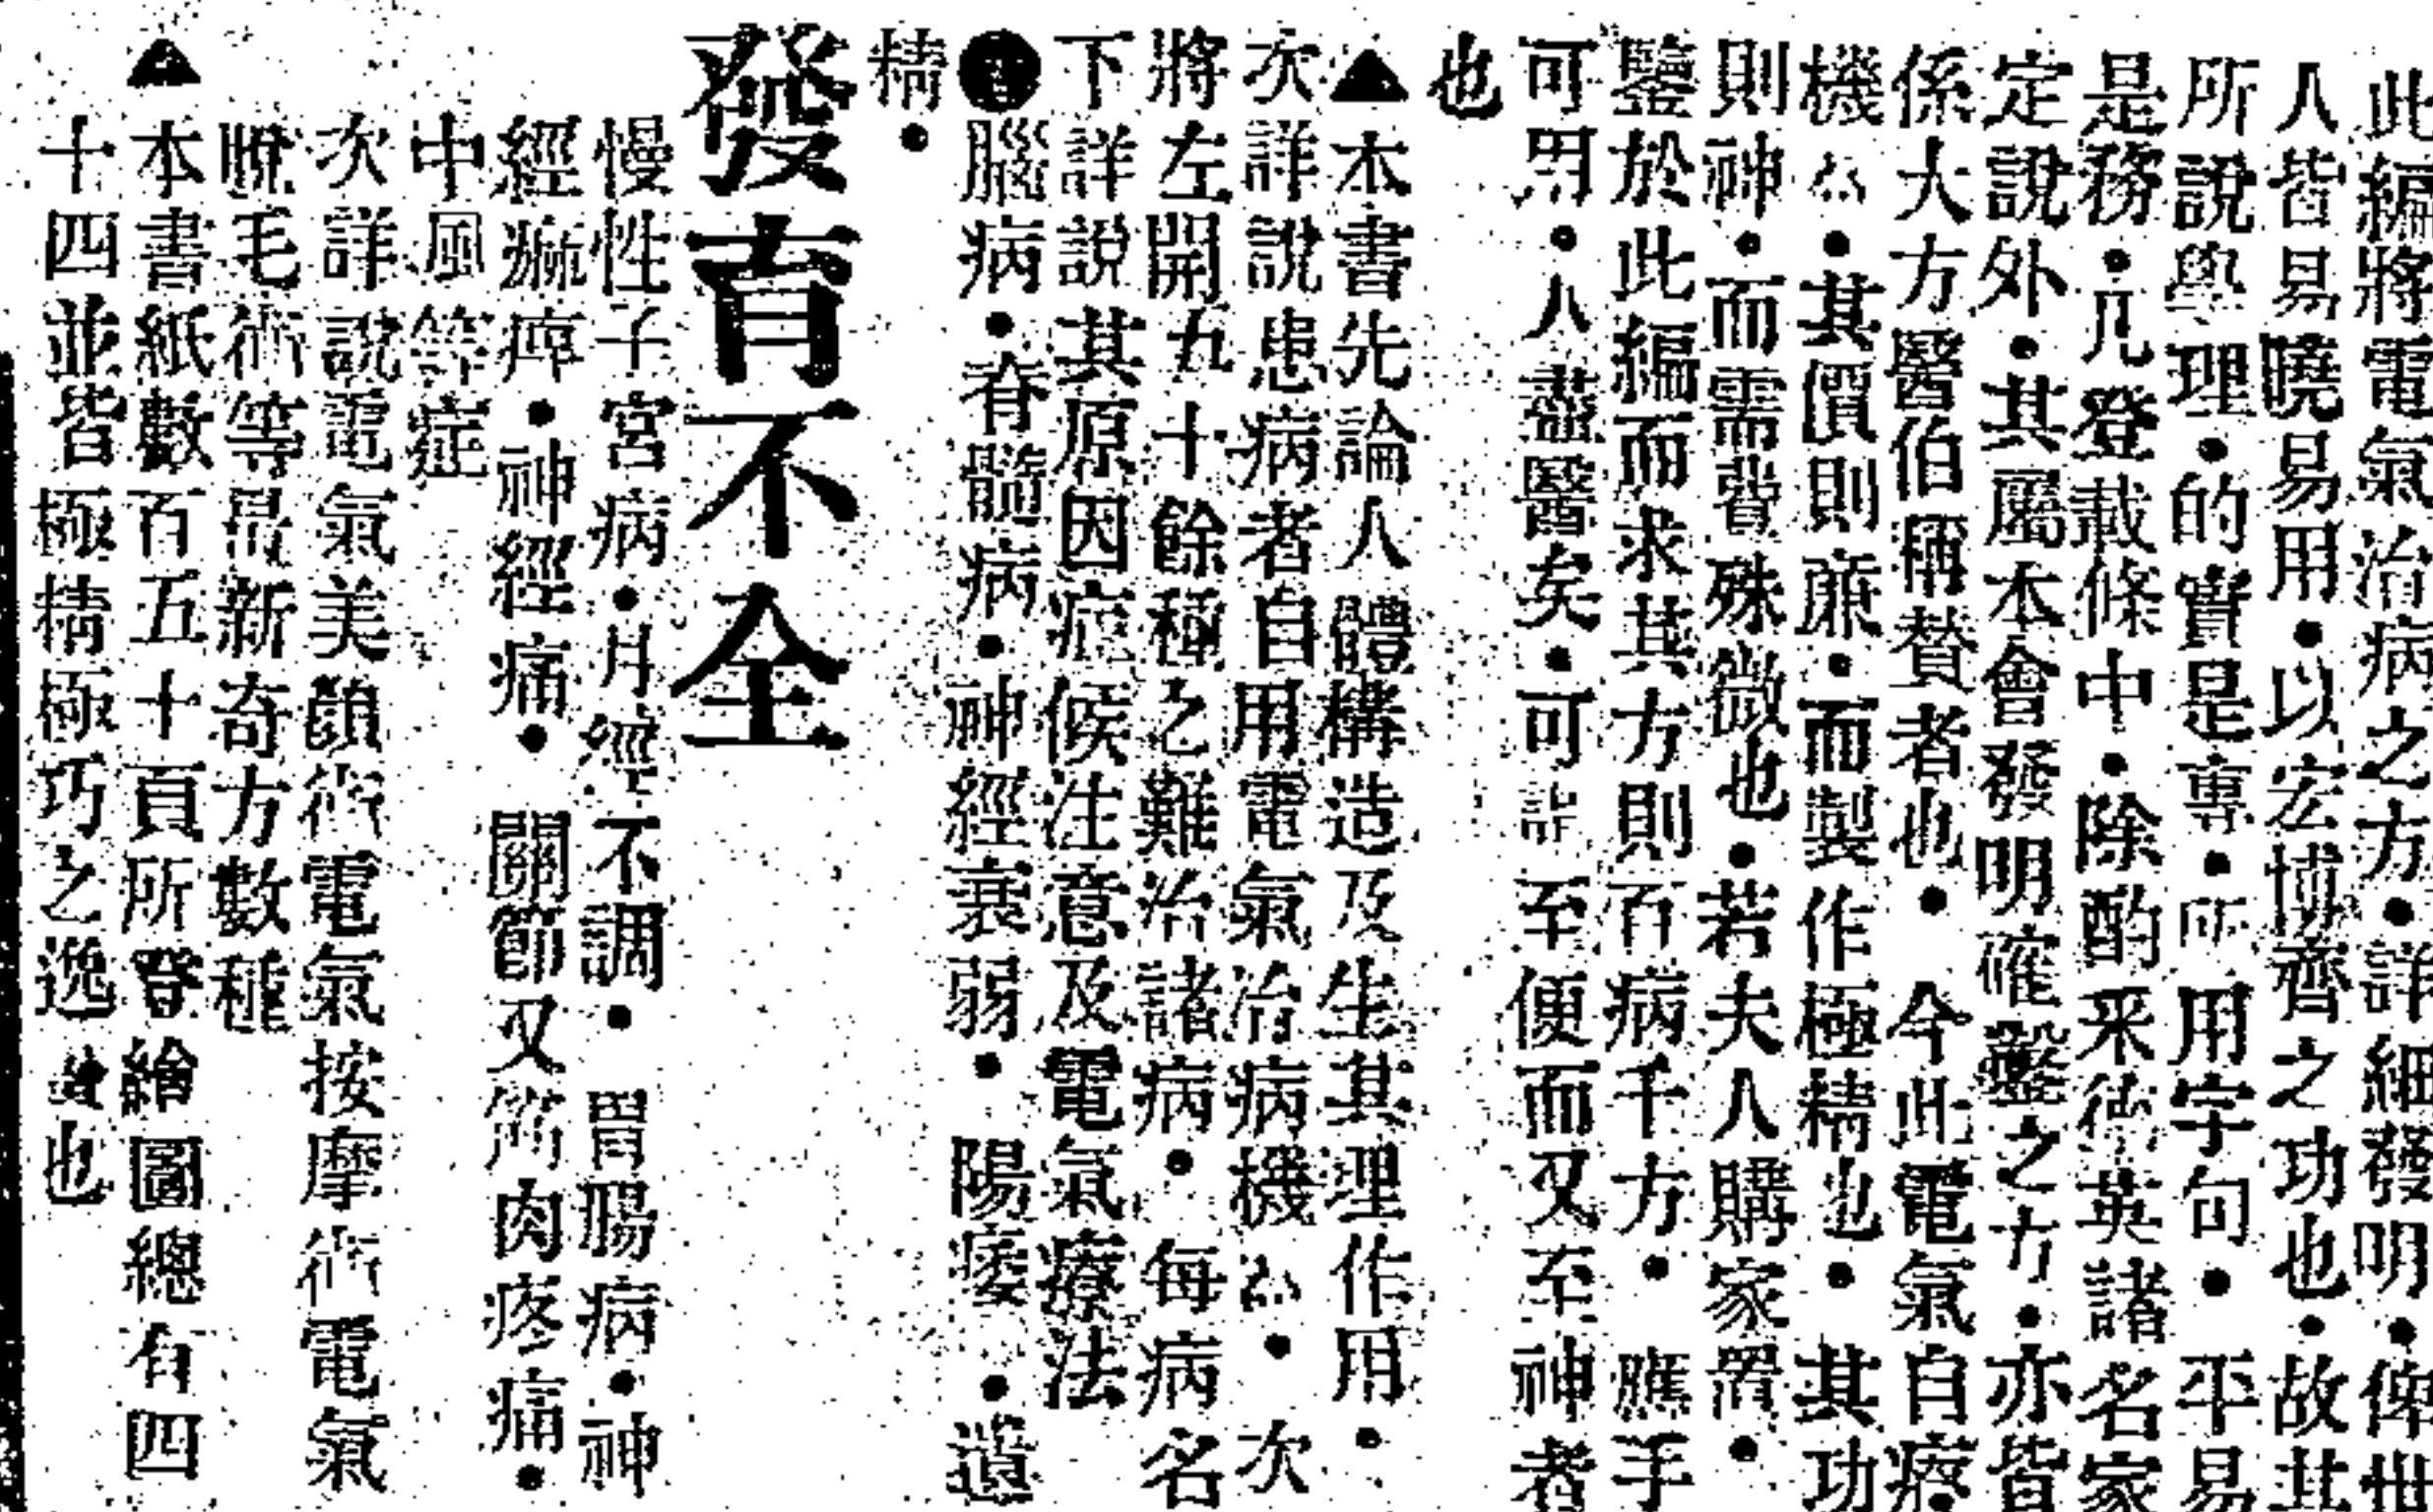 此編將電氣治病之方●詳細發明●俾世
人皆易曉易用●以宏博齊之功也●故其
所說學理●的實是專●所用字句●平易
是務●凡登載條中●除酌采德英諸名家
定說外●其屬本會發明確鑿之方●亦皆
係大方醫伯稱贊者也●今此電氣自療
機ハ●其價則廉●而製作極精也●其功
則神●而需費殊微也●若夫人購家置●
鑒於此編而求其方則百病千方●應手
可用●人盡醫矣●可謂至便而又至神者
也
▲本書先論人體構造及生其理作用●
次詳說患病者自用電氣治病機ハ●次
將左開九十餘種之難治諸病●每病名
下詳說其原因症候注意及電氣療法
●腦病●脊髓病●神經衰弱●陽痿●遺
精●
發育不全
慢性子宮病●月經不調●胃腸病●神
經痲痺●神經痛●關節又筋肉疼痛●
中風等症
次詳說電氣美顏術電氣按摩術電氣
脫毛術等最新奇方數種
▲本書紙數百五十頁所登繪圖總有四
十四並皆極精極巧之逸 也